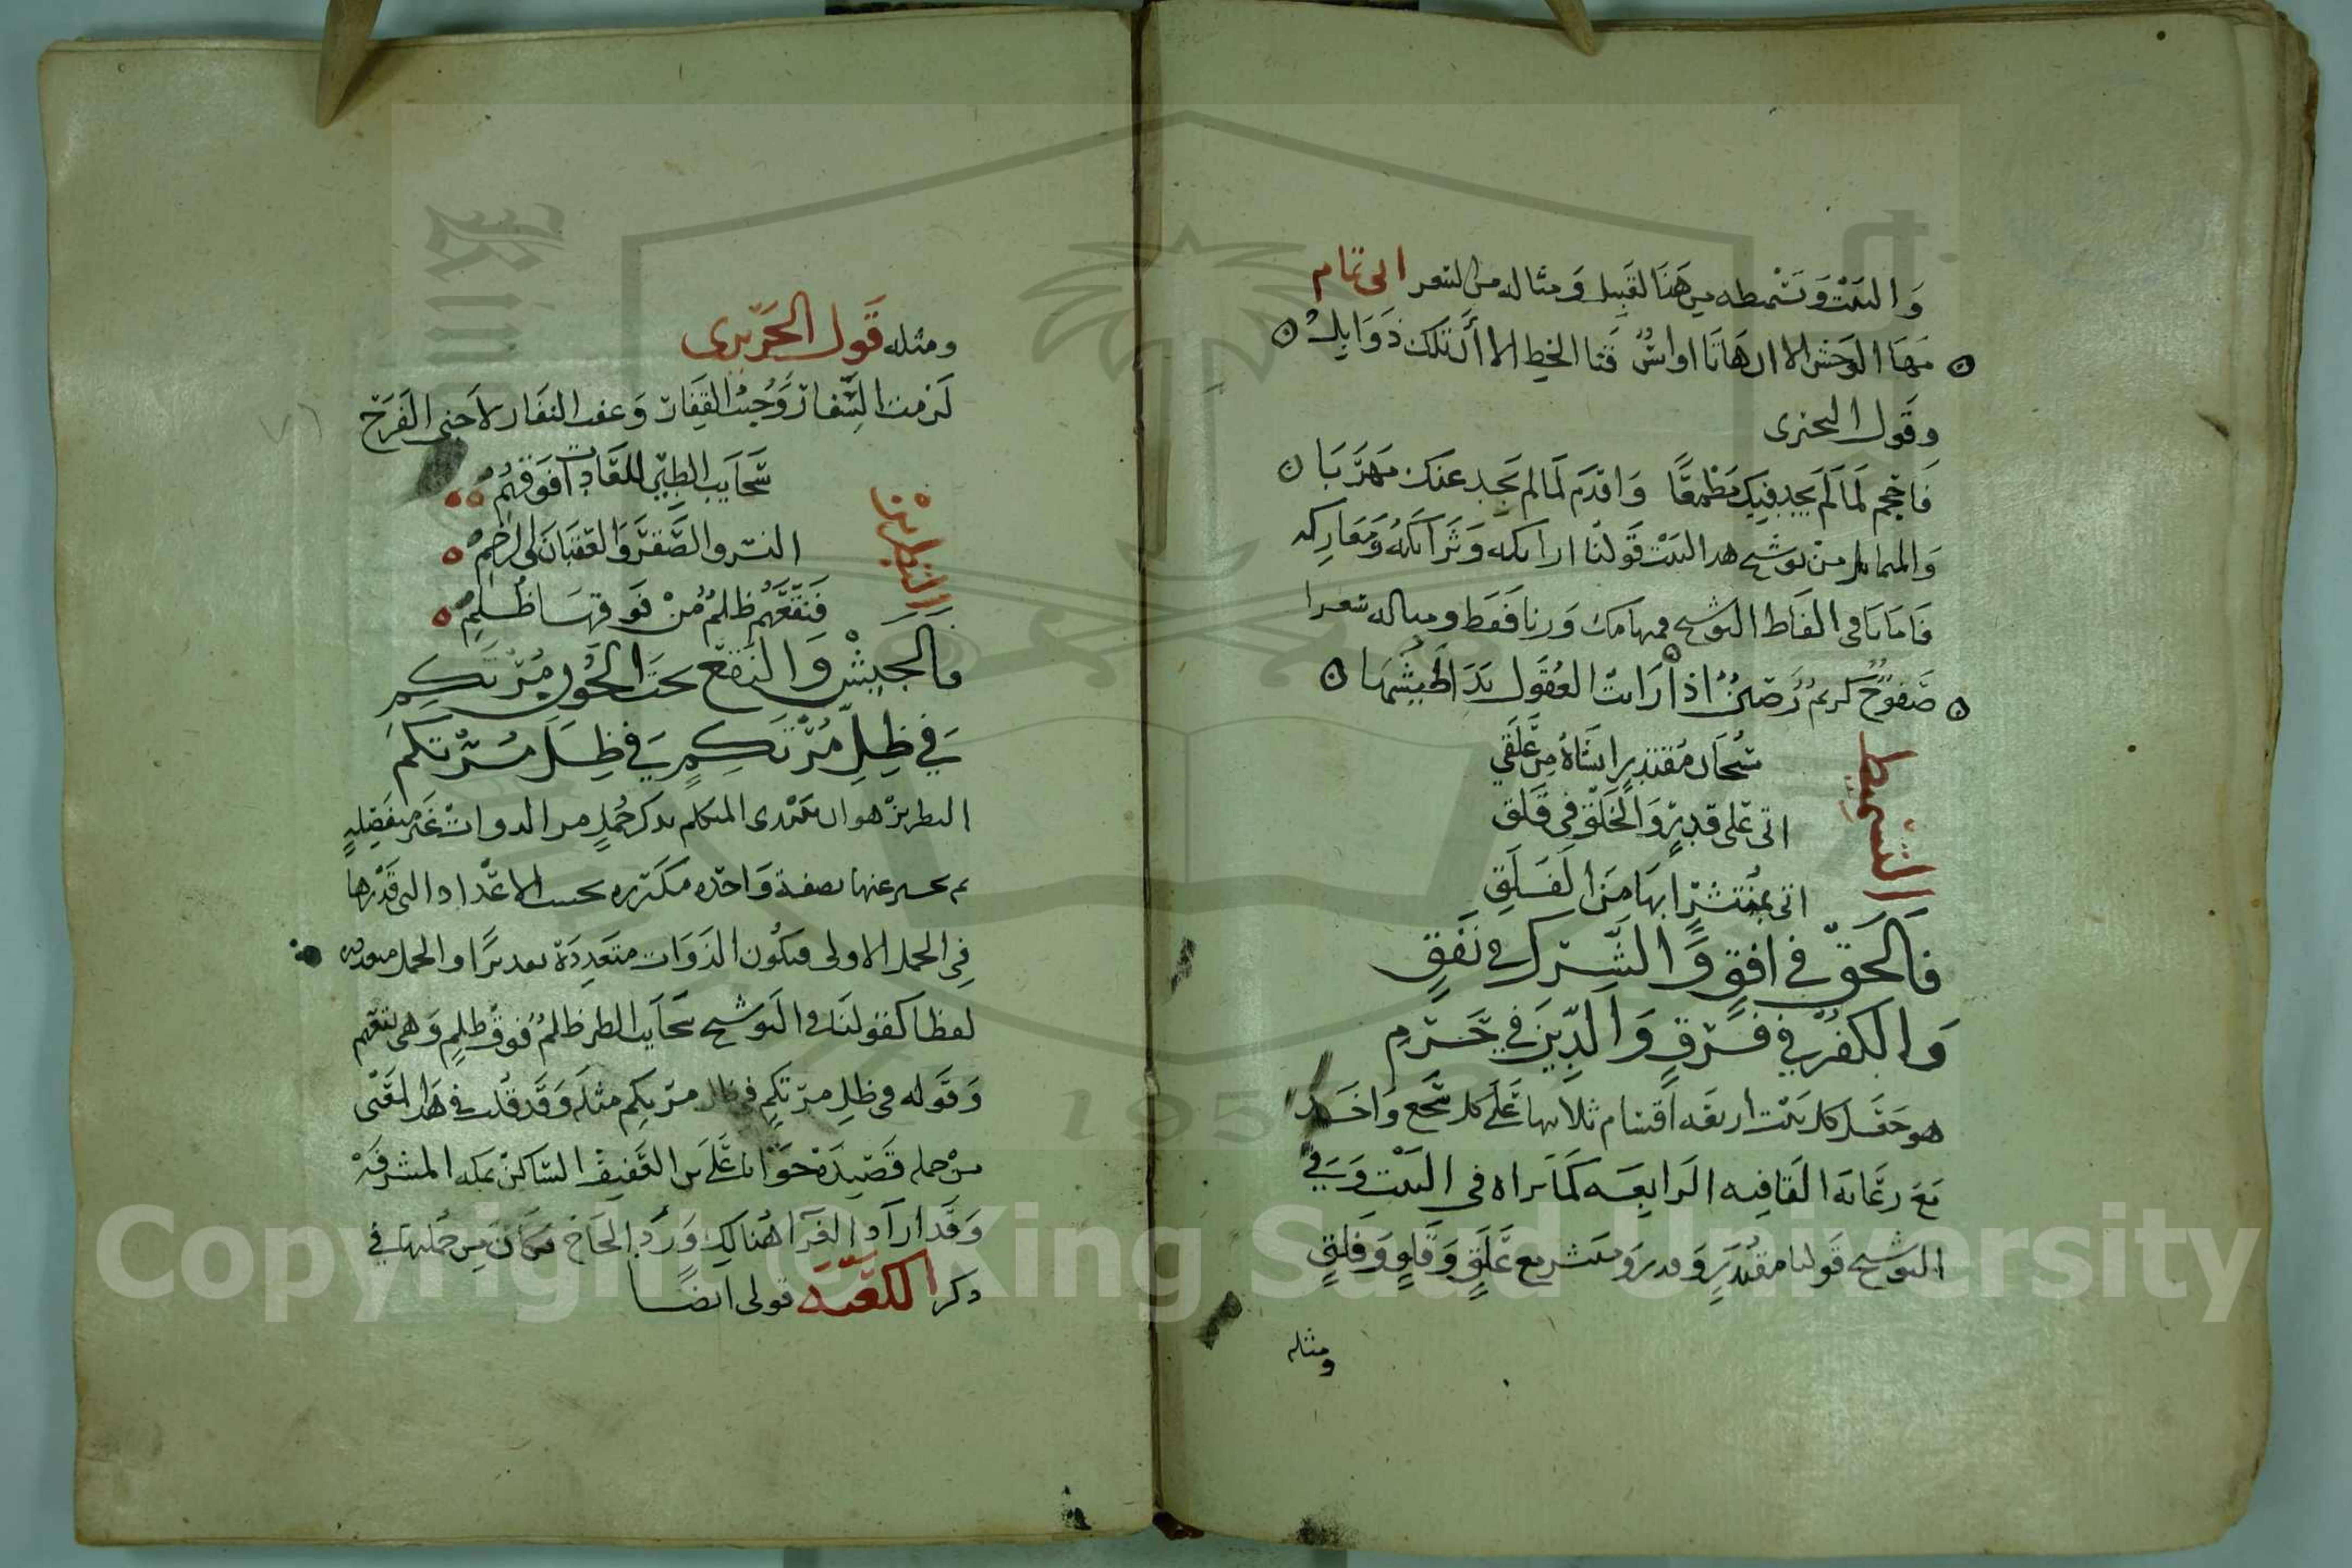 والبيت وتسميطه من هذا القبيل ومثاله من الشعر ابي تمام
مها الوحش الا ان هاتا اوانس قنا الخط الا أن تلك ذوابل
وقول البحتري
فاحجم لما لم يجد فيك مطمعا واقدم لما لم يجد عنك مهربا
والمماثل من توشيح هذا البيت قولنا ارايكه وترايكه ومعاركه
فاما باقي الفاظ التوشيح فمتماثلة وزنا فقط ومثاله شعرا
صفوح كريم رصين اذا رايت العقول بدا طيشها
التسميط
سبحان مقتدر انشاه من علق
اتى على قدر والخلق في قلق
اتى بمنتشر ابها من الفلق
فالحق في افق والشرك في نفق
والكفر في فرق والدين في حرم
هو جعل كل بيت اربعة اقسام ثلاثها على كل سجع واحد
مع رعاية القافيه الرابعه كما تراه في البيت وفي
التوشيح قولنا مقتدر وقدر ومنتشر مع علق وقلق وفلق
ومثله
ومثله قول الحريري
لزمت السفار وجبت القفار وعفت النفار لاجني الفرح
التطريز
سحايب الطير للغادات فوقهم
النسر والصقر والعقبان لا الرخم
فنقعهم ظلم من فوقها ظلم
فالجيش والنقع تحت الجون مرتكم
في ظل مرتكم في ظل مرتكم
التطريز هو ان يبتدى المتكلم بذكر جمل من الذوات غير منفصله
ثم يخبر عنها بصفة واحده مكرره بحسب الاعداد التي قدرها
في الجمل الاولى فتكون الذوات متعددة تقديرا والجمل متعدده
لفظا كقولنا في التوشيح سحايب الطير ظلم فوق ظلم وهي نقعهم
وقوله في ظل مرتكم في ظل مرتكم مثله وقد قلت في هذا المعنى
من جمله قصيدة جوابا على العفيف الساكن بمكه المشرفة
وقد اراد القرا هنالك ورد الحاج فكان من جملتها في
ذكر الكعبه قولى ايضا